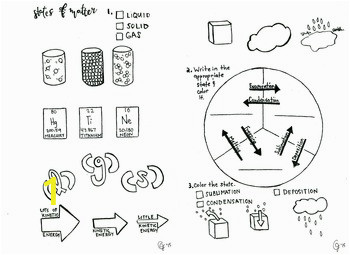 States of matter
1.
LIQUID
SOLID
GAS
80
Hg
200.59
MERCURY
22
Ti
47.867
TITANIUM
10
Ne
20.180
NEON
(l)
(g)
(s)
LOTS OF
KINETIC
ENERGY
KINETIC
ENERGY
LITTLE
KINETIC
ENERGY
2. Write in the
appropriate
state &
color
it.
Evaporation
Condensation
Melting
Freezing
Sublimation
Deposition
3. Color the state.
SUBLIMATION
DEPOSITION
CONDENSATION